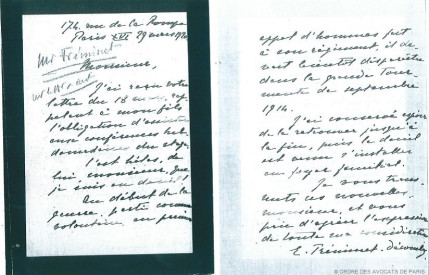 174, rue de la Pompe
Paris XVI 29 mars 19
Mr Tréminet
Monsieur,
J'ai reçu votre
lettre du 18 mars, rap
pelant à mon fils
l'obligation d'assister
aux conférences heb
domadaires du stage.
C'est hélas, de
lui, monsieur, que
je suis en deuil!
Au début de la
guerre, parti comme
volontaire, au premier
appel d'hommes fait
à son régiment, il de
vait bientôt disparaître
dans la grande tour
mente de septembre
1914.
J'ai conservé espoir
de le retrouver jusqu'à
la fin, puis le deuil
est venu s'installer
au foyer familial.
Je vous trans
mets ces nouvelles,
monsieur, et vous
prie d'agréer l'expression
de toute ma considération
E. Tréminet
© ORDRE DES AVOCATS DE PARIS